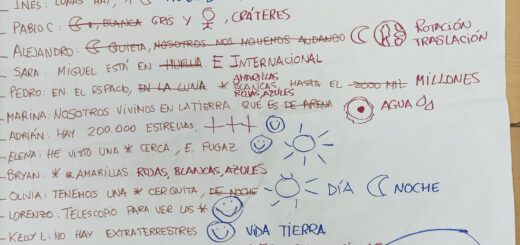 _ INÉS: LUNAS HAY,
_ PABLO C: BLANCA GRIS Y CRÁTERES
_ ALEJANDRO: QUIETA, NOSOTROS NOS MOVEMOS ANDANDO ROTACIÓN TRASLACIÓN
_ SARA: MIGUEL ESTÁ EN HUELLA E INTERNACIONAL
AMARILLAS
_ PEDRO: EN EL ESPACIO, EN LA LUNA * BLANCAS, HASTA EL 2000 MIL MILLONES
ROJAS, AZULES
_ MARINA: NOSOTROS VIVIMOS EN LA TIERRA QUE ES DE ARENA AGUA
_ ADRIÁN: HAY 200.000 ESTRELLAS +++
_ ELENA: HE VISTO UNA * CERCA, E. FUGAZ.
_ BRYAN: * AMARILLAS ROJAS, BLANCAS, AZULES
_ OLIVIA: TENEMOS UNA * CERQUITA, DE NOCHE DÍA NOCHE
_ LORENZO: TELESCOPIO PARA VER LAS *
_ KELLY L: NO HAY EXTRATERRESTRES VIDA TIERRA